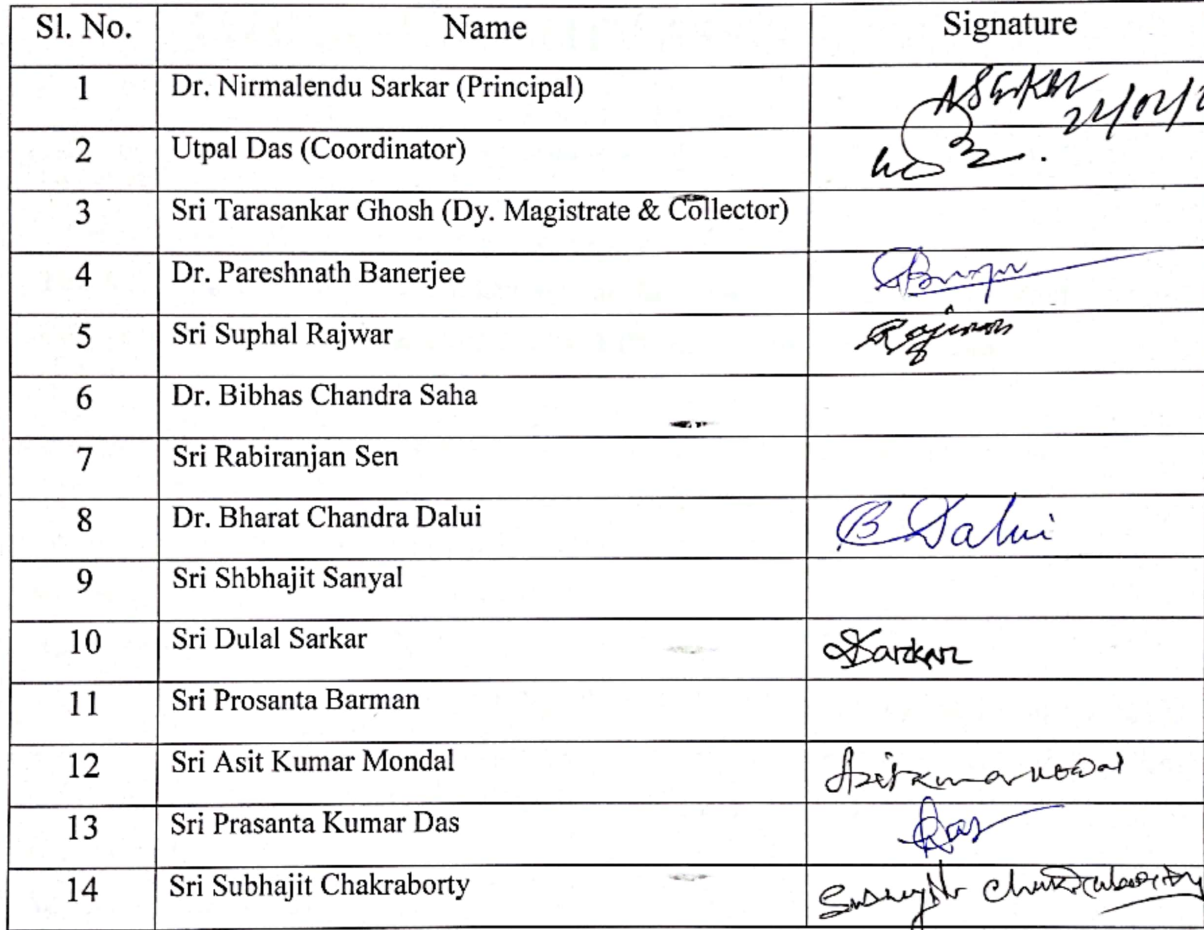 Sl. No. Name Signature
1 Dr. Nirmalendu Sarkar (Principal)
2 Utpal Das (Coordinator)
3 Sri Tarasankar Ghosh (Dy. Magistrate & Collector)
4 Dr. Pareshnath Banerjee
5 Sri Suphal Rajwar
6 Dr. Bibhas Chandra Saha
7 Sri Rabiranjan Sen
8 Dr. Bharat Chandra Dalui B Dalui
9 Sri Shbhajit Sanyal
10 Sri Dulal Sarkar DSarkar
11 Sri Prosanta Barman
12 Sri Asit Kumar Mondal
13 Sri Prasanta Kumar Das
14 Sri Subhajit Chakraborty